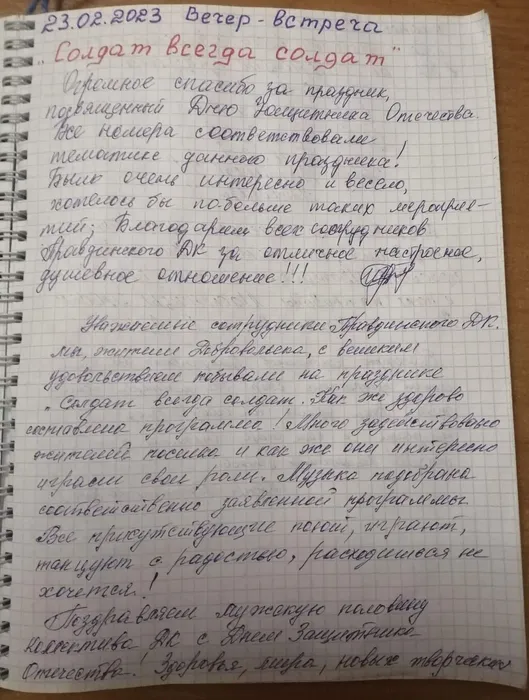 23.02.2023 Вечер-встреча
"Солдат всегда солдат"
Огромное спасибо за праздник,
посвященный Дню Защитника Отечества.
Все номера соответствовали
тематике данного праздника!
Было очень интересно и весело,
хотелось бы побольше таких мероприя-
тий; Благодарим всех сотрудников
Правдинского ДК за отличное настроение,
душевное отношение!!!
Уважаемые сотрудники Правдинского ДК.
мы, жители Добровольска, с великим
удовольствием побывали на празднике
"Солдат всегда солдат. Как же здорово
составлена программа! Много задействовано
жителей поселка и как же они интересно
играли свои роли. Музыка подобрана
соответственно заявленной программы
Все присутствующие поют, играют,
танцуют с радостью, расходиться не
хочется!
Поздравляем мужскую половину
коллектива ДК с Днем Защитника
Отечества! Здоровья, мира, новых творческих